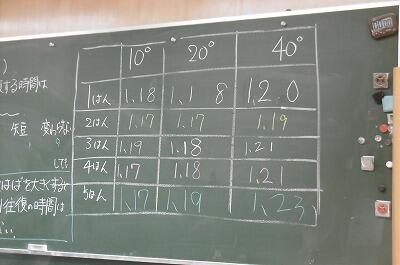 10° 20° 40°
1はん 1.18 1.18 1.20
2はん 1.17 1.17 1.19
3はん 1.19 1.18 1.21
4はん 1.17 1.18 1.21
5はん 1.17 1.19 1.23
)
する時間は
短 変わらない
して
はばを大きくする
往復の時間は